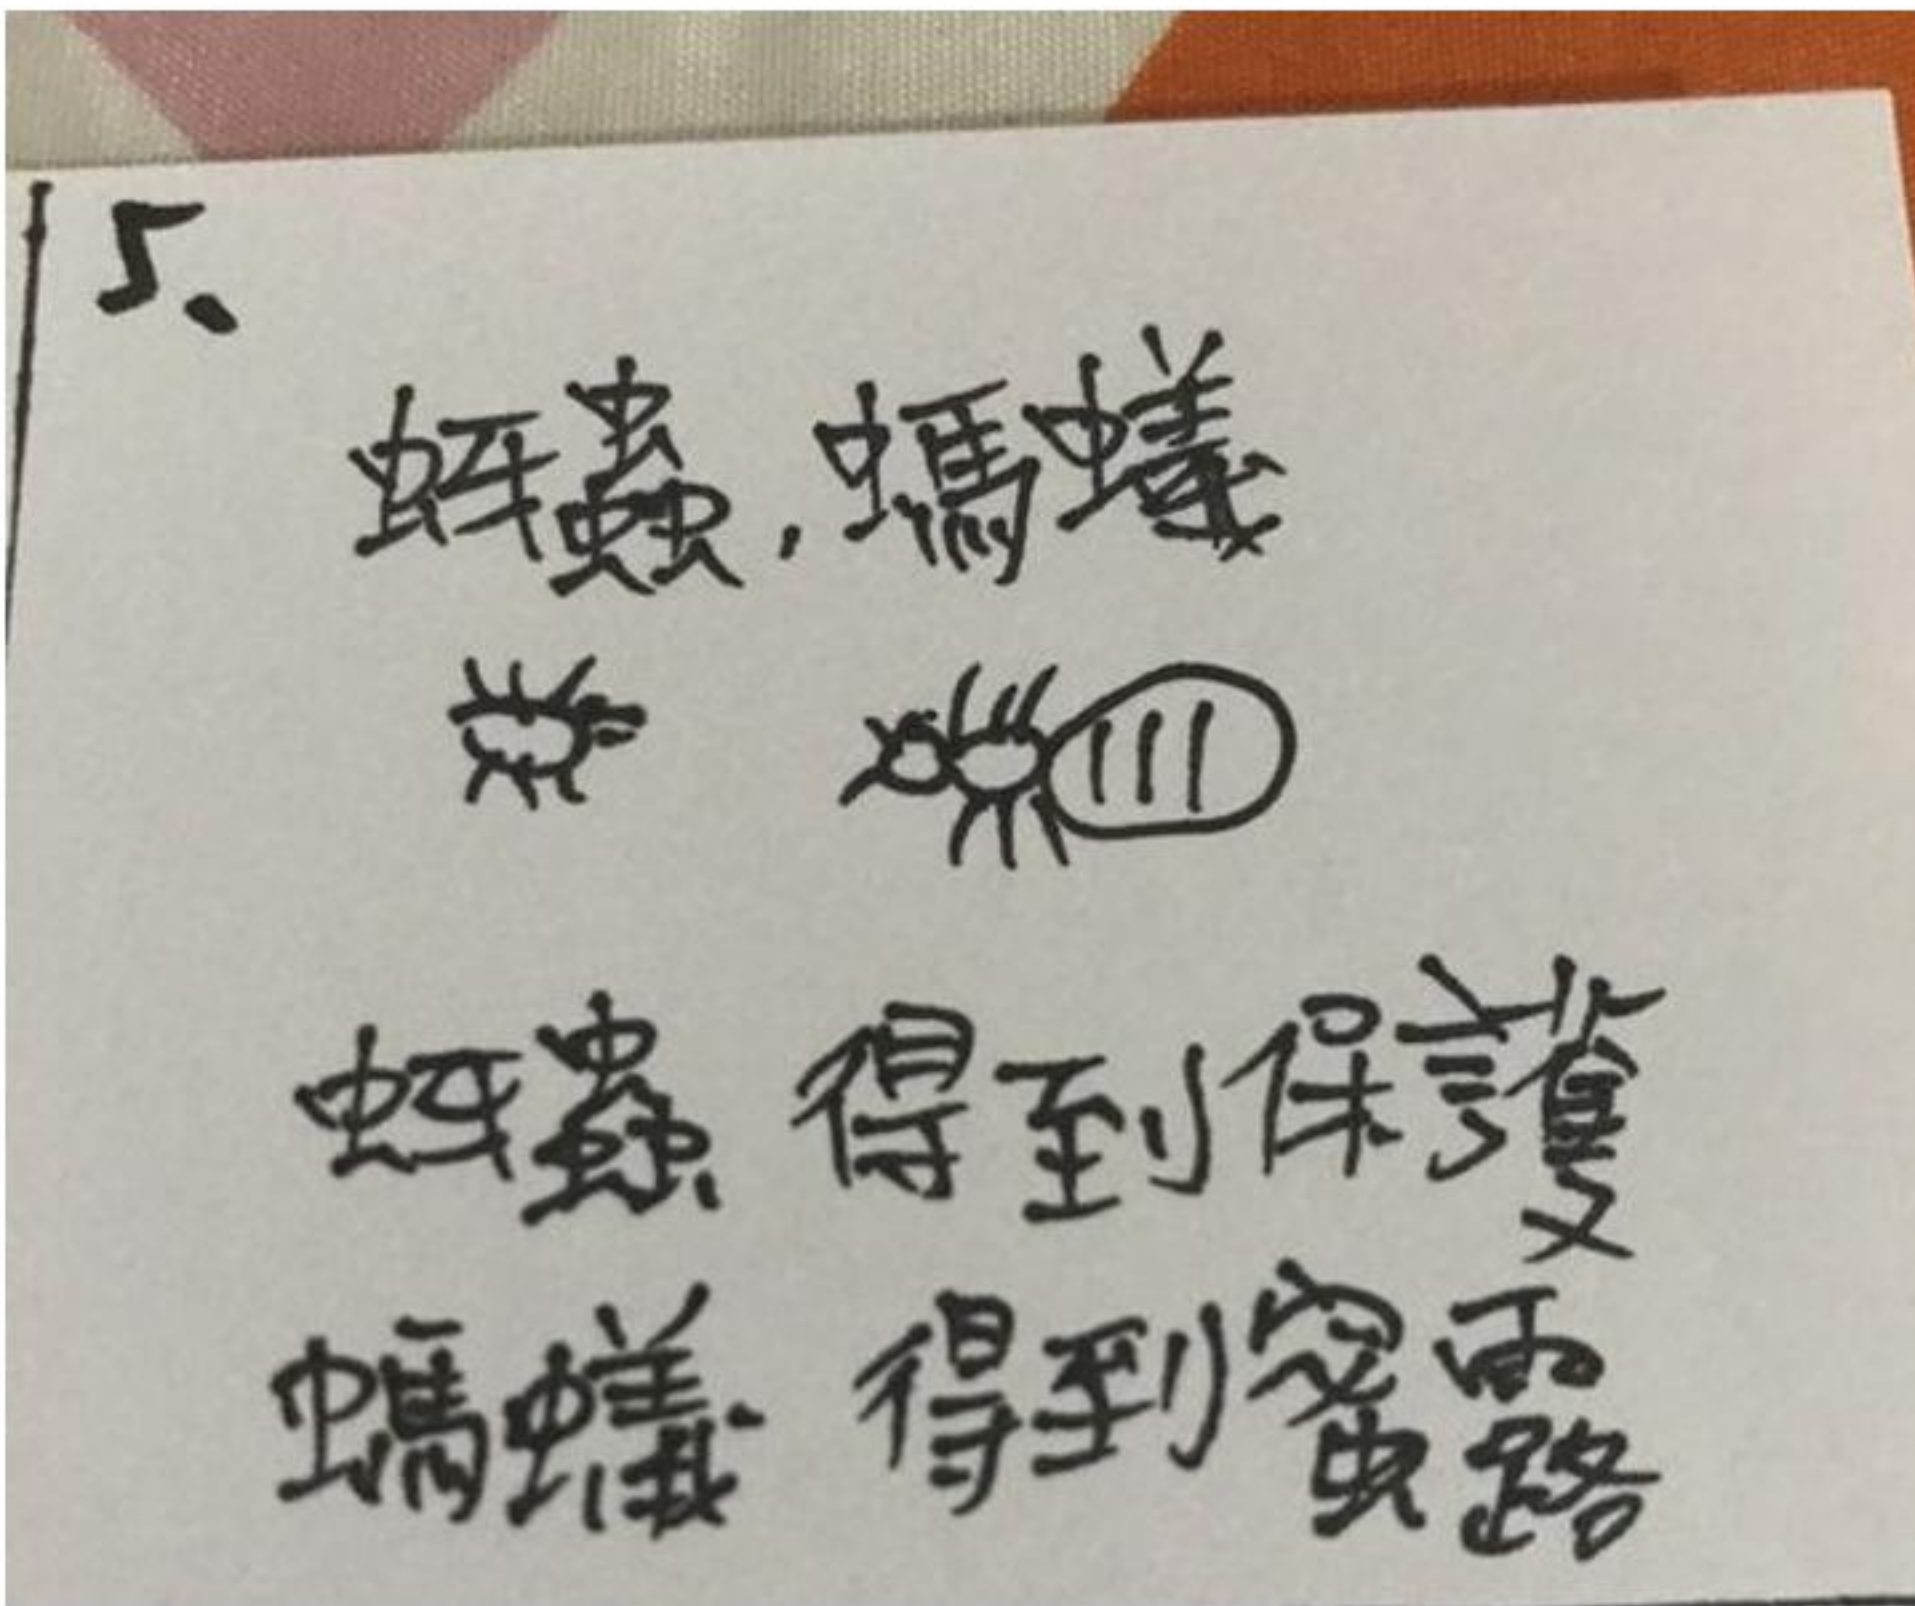 5、
蚜蟲,螞蟻
蚜蟲 得到保護
螞蟻 得到蜜露